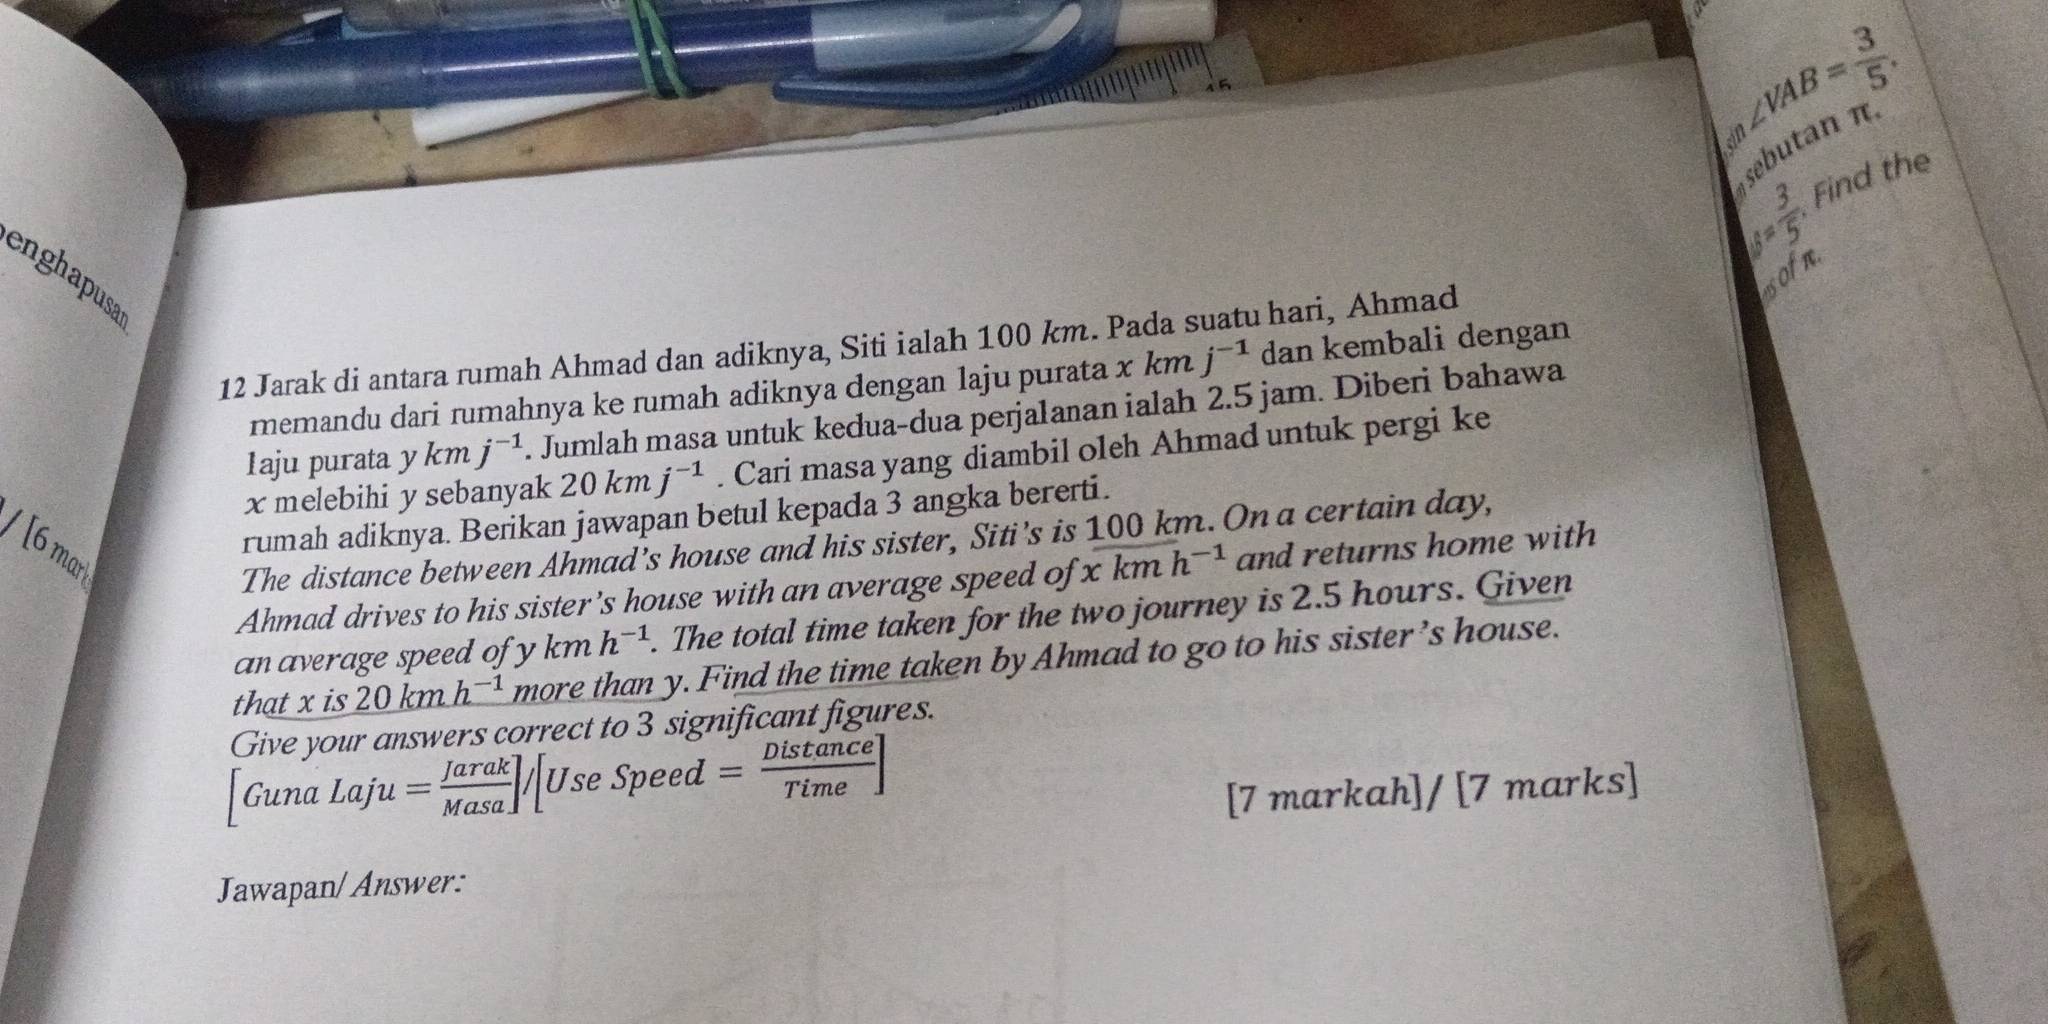 enghapusan.
/ [6 mark
15
12 Jarak di antara rumah Ahmad dan adiknya, Siti ialah 100 km. Pada suatu hari, Ahmad
memandu dari rumahnya ke rumah adiknya dengan laju purata x km j⁻¹ dan kembali dengan
laju purata y km j⁻¹. Jumlah masa untuk kedua-dua perjalanan ialah 2.5 jam. Diberi bahawa
x melebihi y sebanyak 20 km j⁻¹ . Cari masa yang diambil oleh Ahmad untuk pergi ke
rumah adiknya. Berikan jawapan betul kepada 3 angka bererti.
The distance between Ahmad's house and his sister, Siti's is 100 km. On a certain day,
Ahmad drives to his sister's house with an average speed of x km h⁻¹ and returns home with
an average speed of y km h⁻¹. The total time taken for the two journey is 2.5 hours. Given
that x is 20 km h⁻¹ more than y. Find the time taken by Ahmad to go to his sister's house.
Give your answers correct to 3 significant figures.
[Guna Laju = Jarak/Masa]/[Use Speed = Distance/Time]
[7 markah]/ [7 marks]
Jawapan/ Answer:
sin ∠VAB = 3/5.
sebutan π.
= 3/5. Find the
of π.